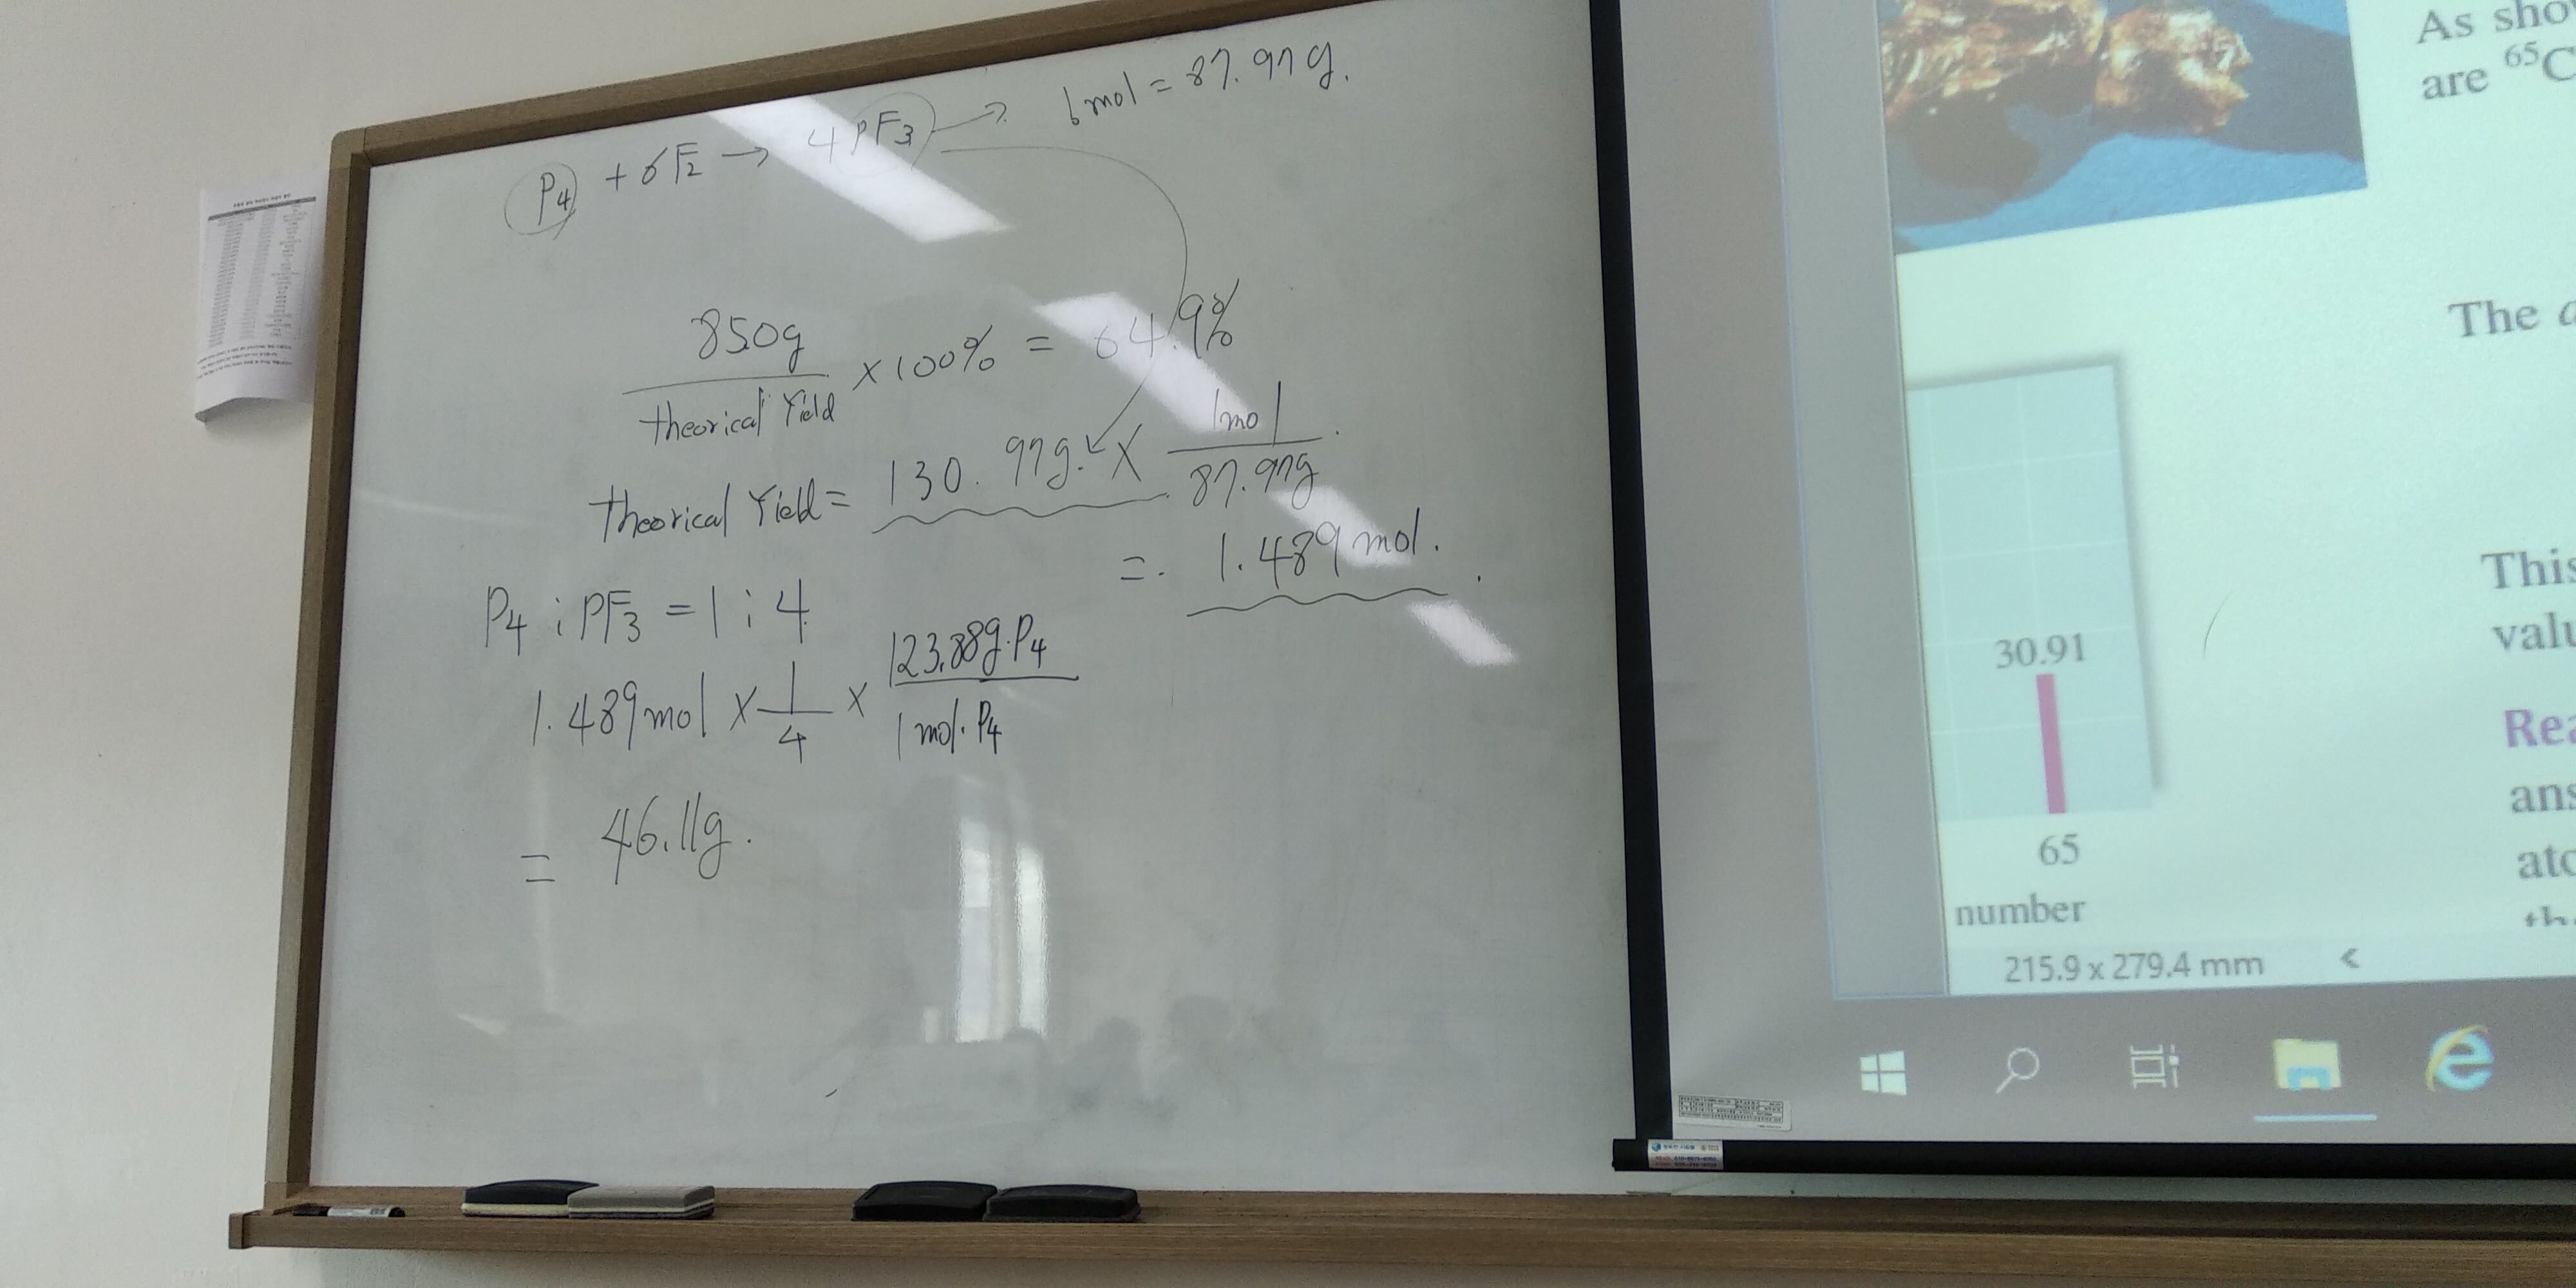 P4 + 6F2 → 4PF3 → 1mol = 87.97g.
85.0g
theorical Yield
× 100% = 64.9%
theorical Yield = 130.97g. × 1mol
87.97g
= 1.489mol.
P4 : PF3 = 1 : 4
1.489mol × 1/4 × 123.88g.P4
1 mol. P4
= 46.11g.
As sho
are 65C
The a
This
valu
30.91
Rea
ans
65
ato
number
215.9 x 279.4 mm <